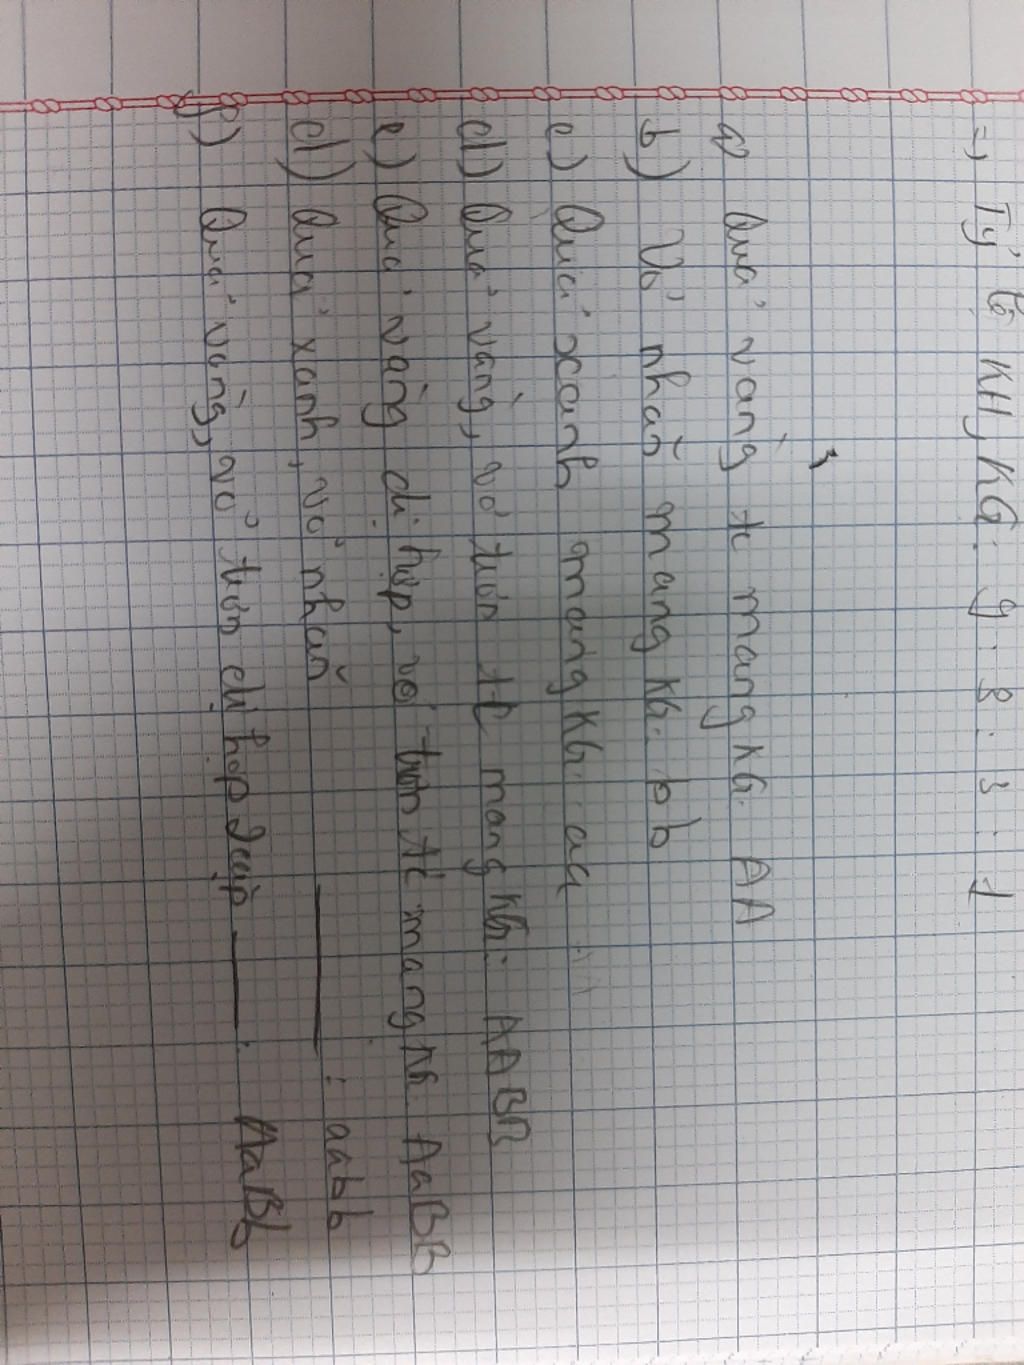 =) Tỷ lệ KH, KG: 9:3:3:1
a) Quả vàng tc mang KG: AA
b) Vỏ nhăn mang KG: bb
c) Quả xanh mang KG: aa
d) Quả vàng, vỏ trơn tc mang KG: AABB
e) Quả vàng dị hợp, vỏ trơn tc mang KG: AaBB
d) Quả xanh, vỏ nhăn — : aabb
f) Quả vàng, vỏ trơn dị hợp 2 cặp — : AaBb